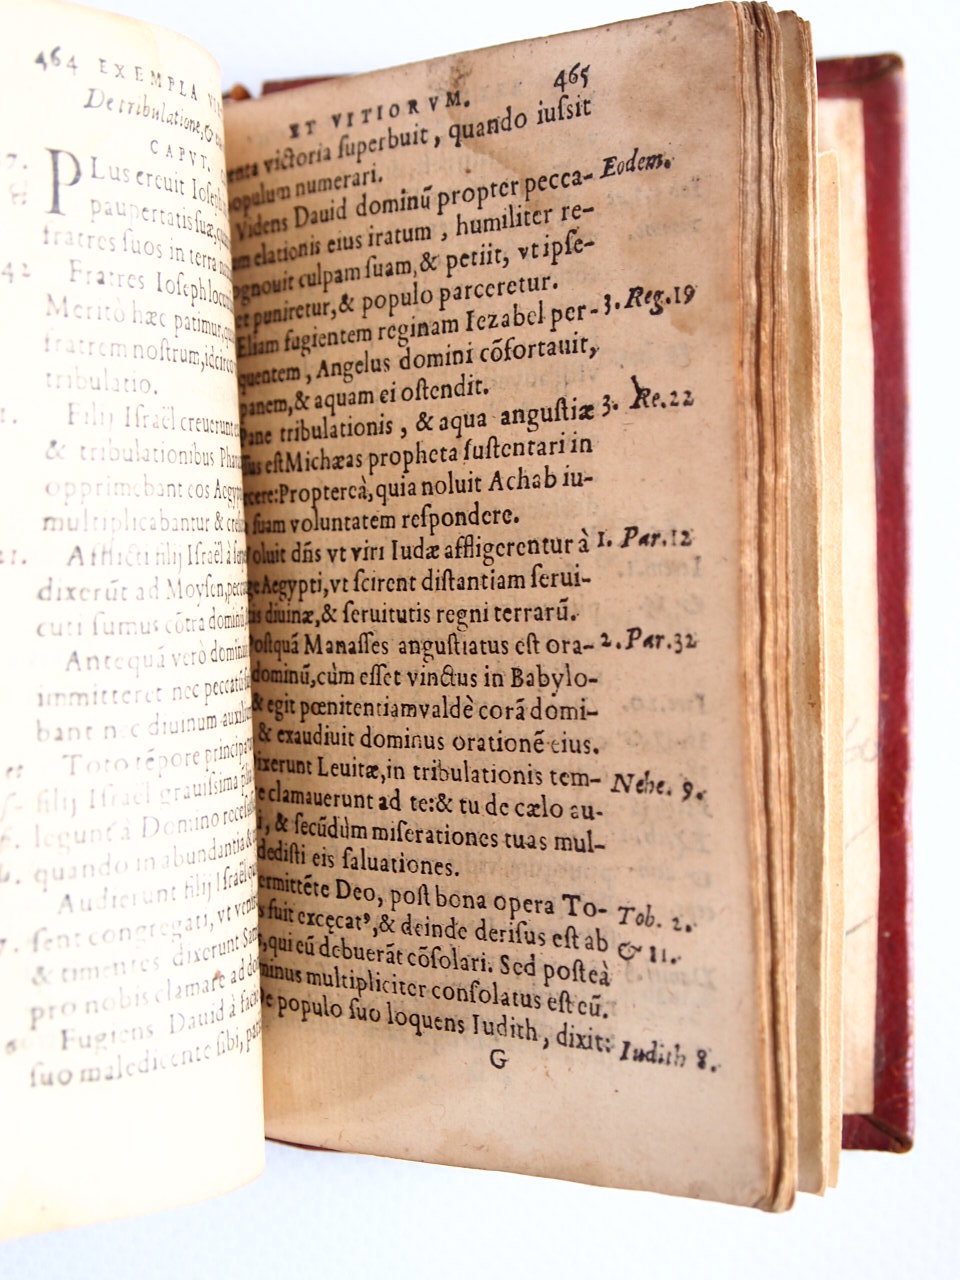 464 EXEMPLA
De tribulatione, &
CAPVT.
PLus eruit Ioseph
paupertatis suæ,
fratres suos in terra
42 Fratres Ioseph
Meritò hæc patimur,
fratrem nostrum, idcirco
tribulatio.
Filij Israël creuerunt
& tribulationibus
opprimebant eos
multiplicabantur &
Afflicti filij Israël à
dixerūt ad Moysen,
cuti sumus cōtra
Antequā verò
immitteret nec
bant nec diuinum
Toto tēpore
filij Israël grauissima
legunt à Domino
quando in abundantia
Audierunt filij Israël
sent congregati, vt
& timentes dixerunt
pro nobis clamare ad
Fugiens Dauid à
suo maledicente sibi,
ET VITIORVM. 465
victoria superbuit, quando iussit
numerari.
Videns Dauid dominū propter pecca- Eodem.
elationis eius iratum, humiliter re-
culpam suam, & petiit, vt ipse-
puniretur, & populo parceretur.
Eliam fugientem reginam Iezabel per- 3. Reg. 19
quentem, Angelus domini cōfortauit,
panem, & aquam ei ostendit.
Pane tribulationis, & aqua angustiæ 3. Re. 22
est Michæas propheta sustentari in
cere: Proptereà, quia noluit Achab iu-
suam voluntatem respondere.
oluit dñs vt viri Iudæ affligerentur à 1. Par. 12
ge Aegypti, vt scirent distantiam serui-
tis diuinæ, & seruitutis regni terrarū.
Postquā Manasses angustiatus est ora- 2. Par. 32
dominū, cùm esset vinctus in Babylo-
& egit pœnitentiam valdè corā domi-
& exaudiuit dominus orationē eius.
ixerunt Leuitæ, in tribulationis tem- Nehe. 9.
re clamauerunt ad te: & tu de cælo au-
i, & secūdùm miserationes tuas mul-
dedisti eis saluationes.
ermittēte Deo, post bona opera To- Tob. 2.
s fuit excęcatꝰ, & deinde derisus est ab & 11.
, qui eū debuerāt cōsolari. Sed posteà
minus multipliciter consolatus est eū.
e populo suo loquens Iudith, dixit: Iudith 8.
G